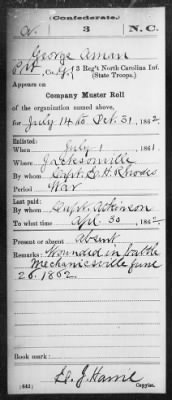 (Confederate.)
3 N.C.
George Amon
Pvt, Co. G, 3 Reg't North Carolina Inf.
(State Troops.)
Appears on
Company Muster Roll
of the organization named above,
for July 14 to Oct. 31, 1862.
Enlisted:
When July 1, 1861.
Where Jacksonville
By whom Capt. E. H. Rhodes
Period War
Last paid:
By whom Capt. Atkinson
To what time Apl. 30, 1862.
Present or absent Absent
Remarks: Wounded in battle
Mechanicsville June
26. 1862.
Book mark:
(642) Copyist.